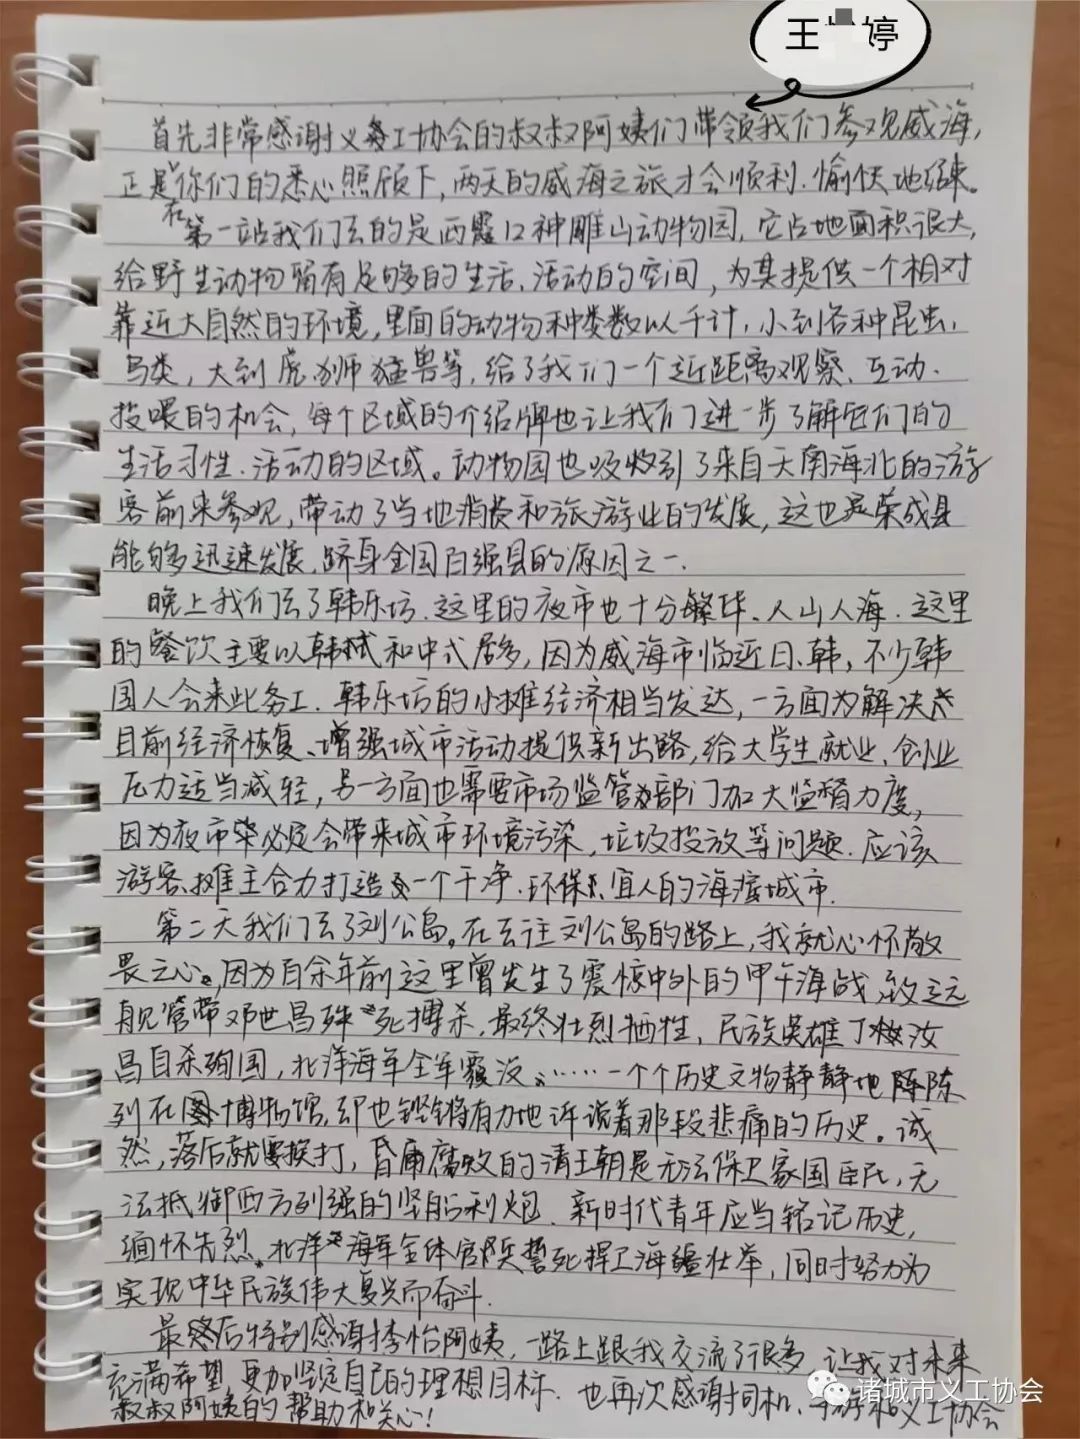 王 婷
首先非常感谢义务工协会的叔叔阿姨们带领我们参观威海,
正是你们的悉心照顾下,两天的威海之旅才会顺利、愉快地结束。
在第一站我们去的是西霞口神雕山动物园,它占地面积很大,
给野生动物留有足够多的生活、活动的空间,为其提供一个相对
靠近大自然的环境,里面的动物种类数以千计,小到各种昆虫、
鸟类,大到虎狮猛兽等,给了我们一个近距离观察、互动、
投喂的机会,每个区域的介绍牌也让我们进一步了解它们的
生活习性、活动的区域。动物园也吸收引了来自天南海北的游
客前来参观,带动了当地消费和旅游业的发展,这也是荣成县
能够迅速发展、跻身全国百强县的原因之一.
晚上我们去了韩乐坊.这里的夜市也十分繁华、人山人海.这里
的餐饮主要以韩式和中式居多,因为威海市临近日、韩,不少韩
国人会来此务工.韩乐坊的小摊经济相当发达,一方面为解决
目前经济恢复、增强城市活动提供新出路,给大学生就业、创业
压力适当减轻,另一方面也需要市场监管部门加大监督力度,
因为夜市必定会带来城市环境污染,垃圾投放等问题.应该
游客、摊主合力打造一个干净、环保、宜人的海滨城市.
第二天我们去了刘公岛。在去往刘公岛的路上,我就心怀敬
畏之心。因为百余年前这里曾发生了震惊中外的甲午海战,致远
舰管带邓世昌殊死搏杀,最终壮烈牺牲,民族英雄丁汝
昌自杀殉国,北洋海军全军覆没……一个个历史文物静静地陈
列在博物馆,却也铿锵有力地诉说着那段悲痛的历史。诚
然,落后就要挨打,昏庸腐败的清王朝是无法保卫家国臣民,无
法抵御西方列强的坚船利炮.新时代青年应当铭记历史,
缅怀先烈.北洋海军全体官兵誓死捍卫海疆壮举,同时努力为
实现中华民族伟大复兴而奋斗.
最后特别感谢李怡阿姨,一路上跟我交流了很多,让我对未来
充满希望,更加坚定自己的理想目标.也再次感谢司机、导游和义工协会
叔叔阿姨的帮助和关心!
诸城市义工协会